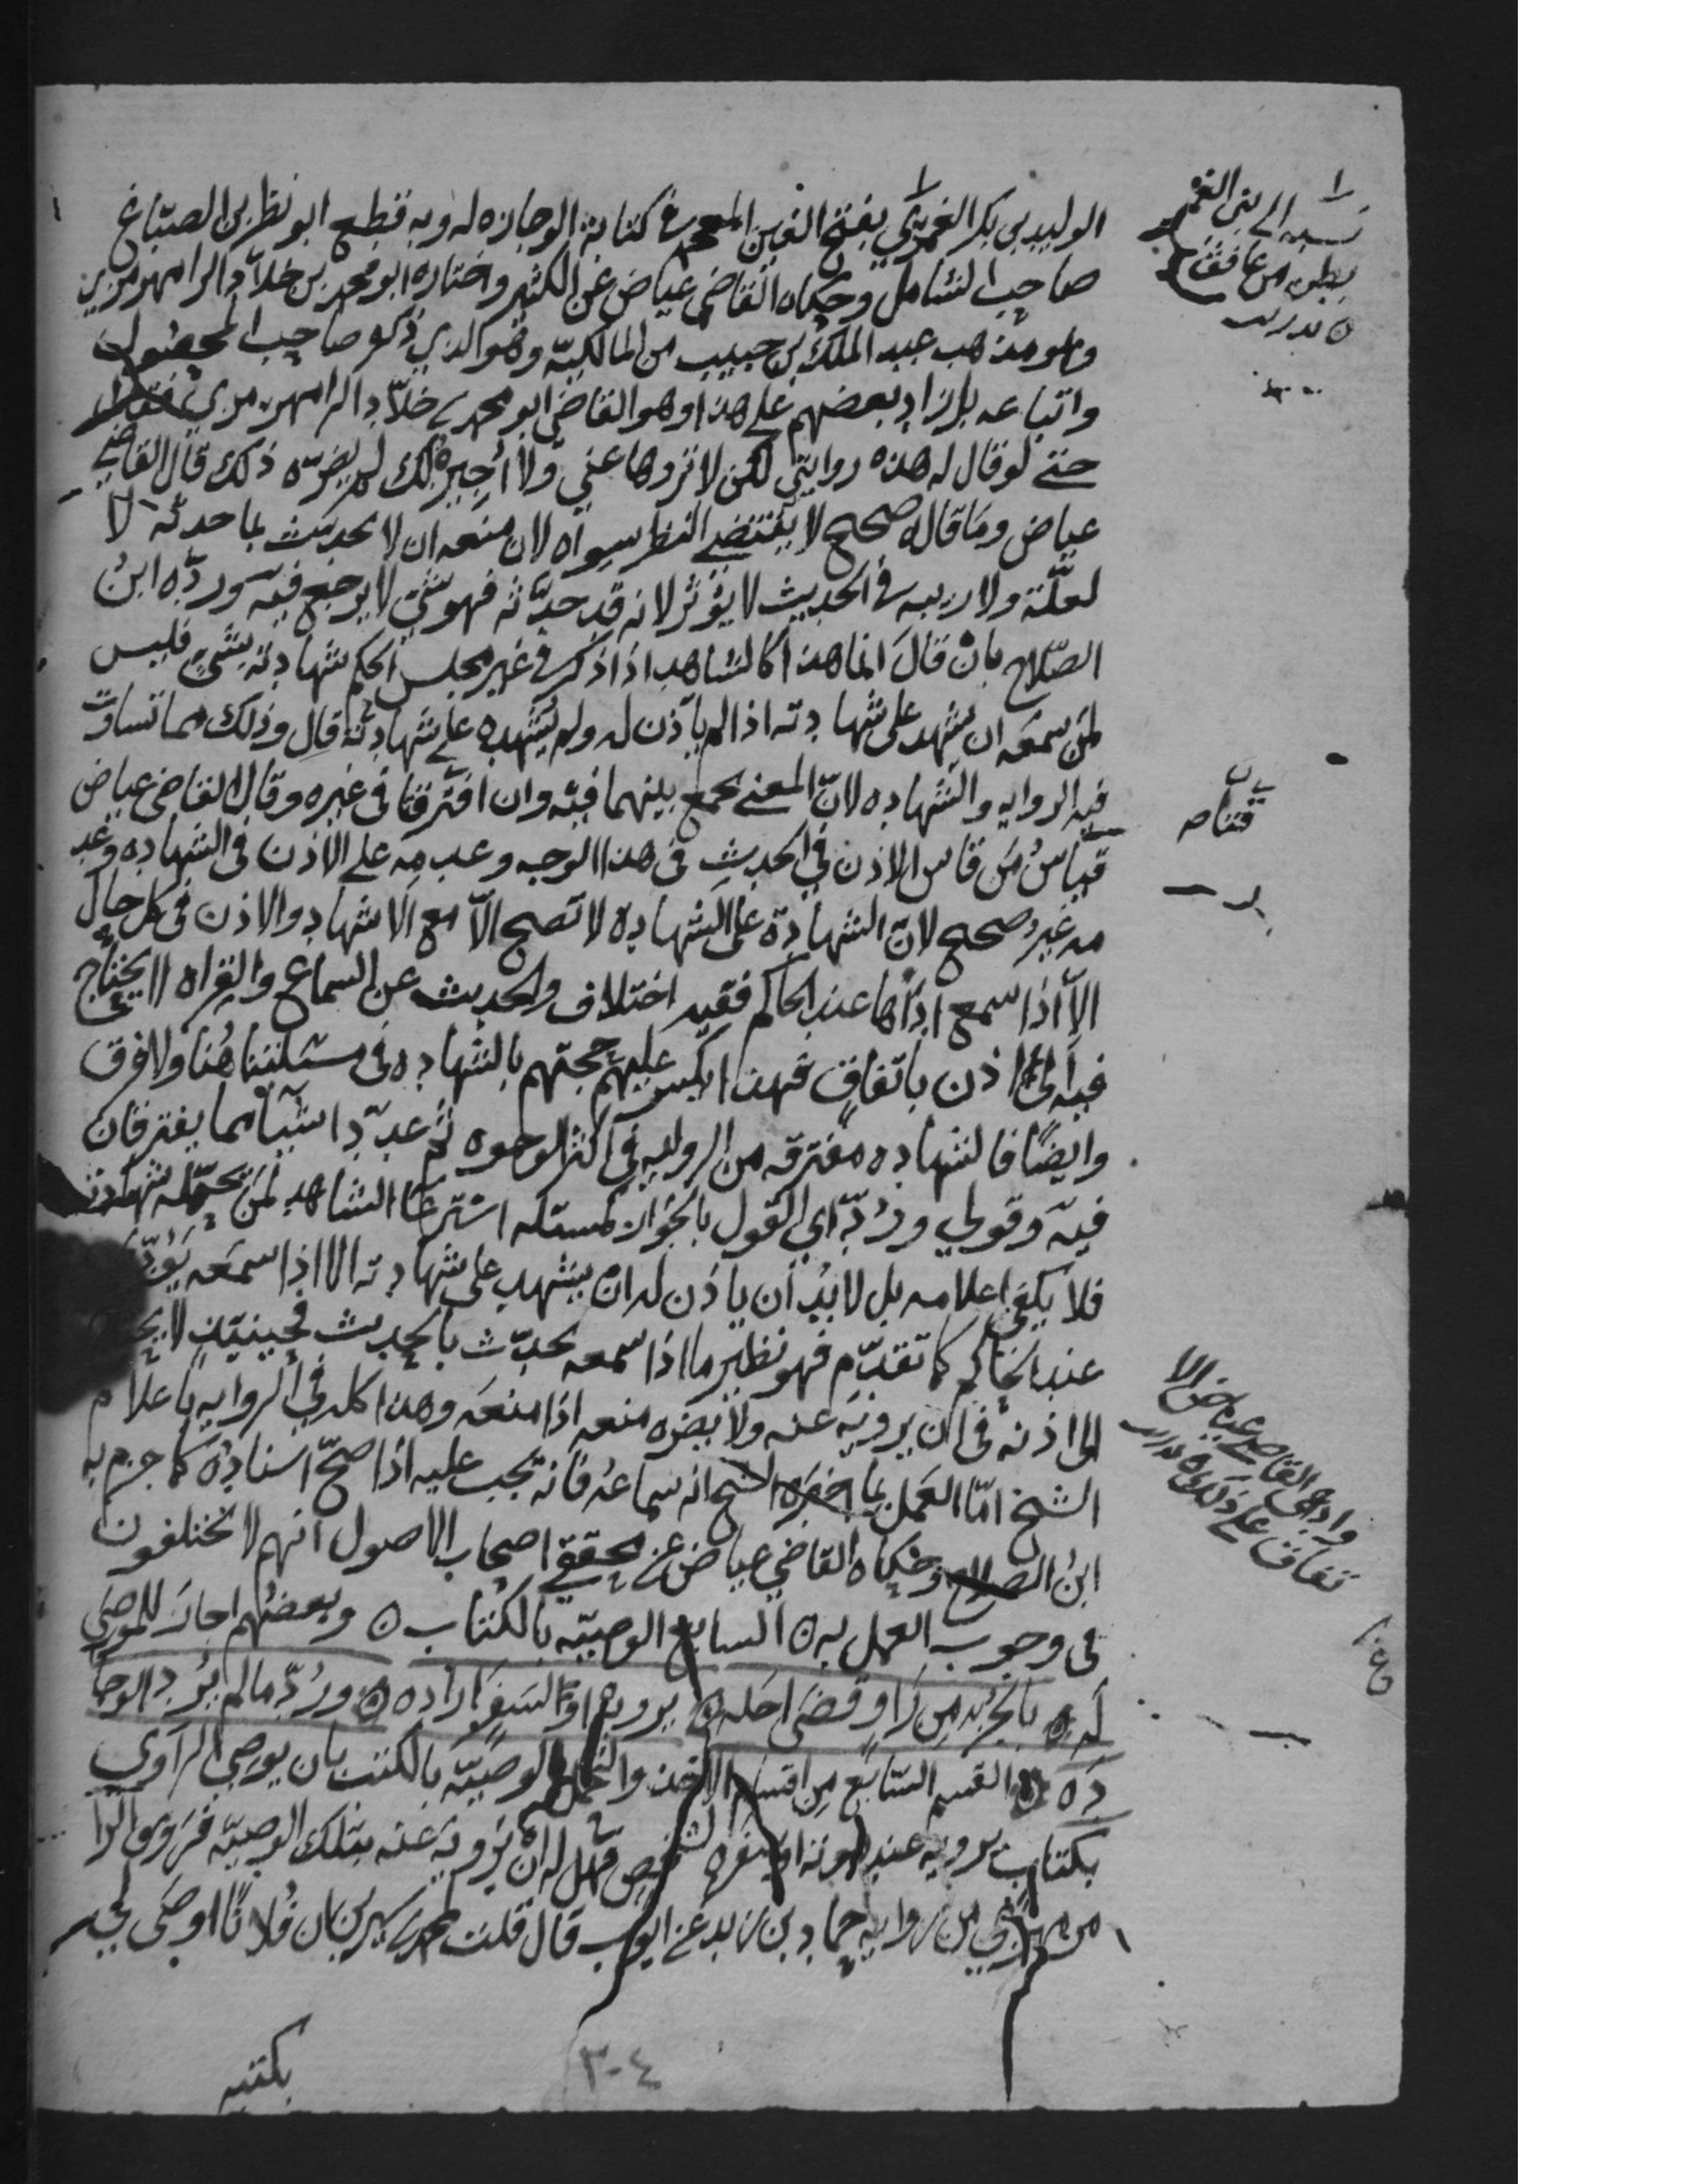 الوليد بن بكر الغمري بفتح الغين المعجمه في كتابة الوجازه له وبه قطع ابو نظر بن الصباغ
صاحب الشامل وحكاه القاضي عياض عن الكثير واختاره ابو محمد بن خلاد الرامهرمزي
وهو مذهب عبد الملك بن حبيب من المالكيه وهو الذي ذكره صاحب المحصول
واتباعه بل زاد بعضهم على هذا وهو القاضي ابو محمد بن خلاد الرامهرمزي فقال
حتى لو قال له هذه روايتي لكن لا تروها عني ولا اجيزه لك لم يضره ذلك قال القاضي
عياض وما قاله صحيح لا يقتضي النظر سواه لان منعه ان لا يحدث بما حدثه لا
لعلة ولا ريبه في الحديث لا يؤثر لانه قد حدثه فهو شي لا يرجع فيه ورده ابن
الصلاح بان قال انما هذا كالشاهد اذا ذكر في غير مجلس الحكم شهادته بشي فليس
لمن سمعه ان يشهد على شهادته اذا لم ياذن له ولم يشهده على شهادته قال وذلك مما تساوت
فيه الروايه والشهاده لان المعنى يجمع بينهما فيه وان افترقتا في غيره وقال القاضي عياض
قياس من قاس الاذن في الحديث في هذا الوجه وعدمه على الاذن في الشهاده وعد
مه غير صحيح لان الشهادة على الشهادة لا تصح الا مع الاشهاد والاذن في كل حال
الا اذا سمع اداها عند الحاكم ففيه اختلاف والحديث عن السماع والقراه لا يحتاج
فيه الى اذن باتفاق فهذا يكسر عليهم حجتهم بالشهاده في مسئلتنا هنا ولا فرق
وايضا فالشهاده مفترقه من الروايه في اكثر الوجوه ثم عدد اشيا مما يفترقان
فيه وقولي ورد اي القول بالجواز كمسئله استرعا الشاهد لمن تحمله شهادته
فلا يكفي اعلامه بل لا بد ان ياذن له ان يشهد على شهادته الا اذا سمعه
عند الحاكم كما تقدم فهو نظير ما اذا سمعه يحدث بالحديث فحينيذ لا
الى اذنه في ان يرويه عنه ولا يضره منعه اذا منعه وهذا كله في الروايه باعلام
الشيخ اما العمل بما اخبره الشيخ انه سماعه فانه يجب عليه اذا صح اسناده كما جزم به
ابن الصلاح وحكاه القاضي عياض عن محققي اصحاب الاصول انهم لا يختلفون
في وجوب العمل به ه السابع الوصيه بالكتاب ه وبعضهم اجاز للموصى
له ه بالجزء من راو قضى اجله ه يرويه او لسفر اراده ه ورد ما لم يرد الوجا
ده ه القسم السابع من اقسام الاخذ والتحمل الوصيه بالكتب بان يوصي الراوي
بكتاب يرويه عند موته او سفره لشخص فهل له ان يرويه عنه بتلك الوصيه فروى الرا
مهرمزي من روايه حماد بن زيد عن ايوب قال قلت لمحمد بن سيرين ان فلانا اوصى لي
بكتبه
نسبه الى بني الغمر
بطن من غافق
قتاه
وادعى القاضي عياض الا
تفاق على ذلك
٣٠٤